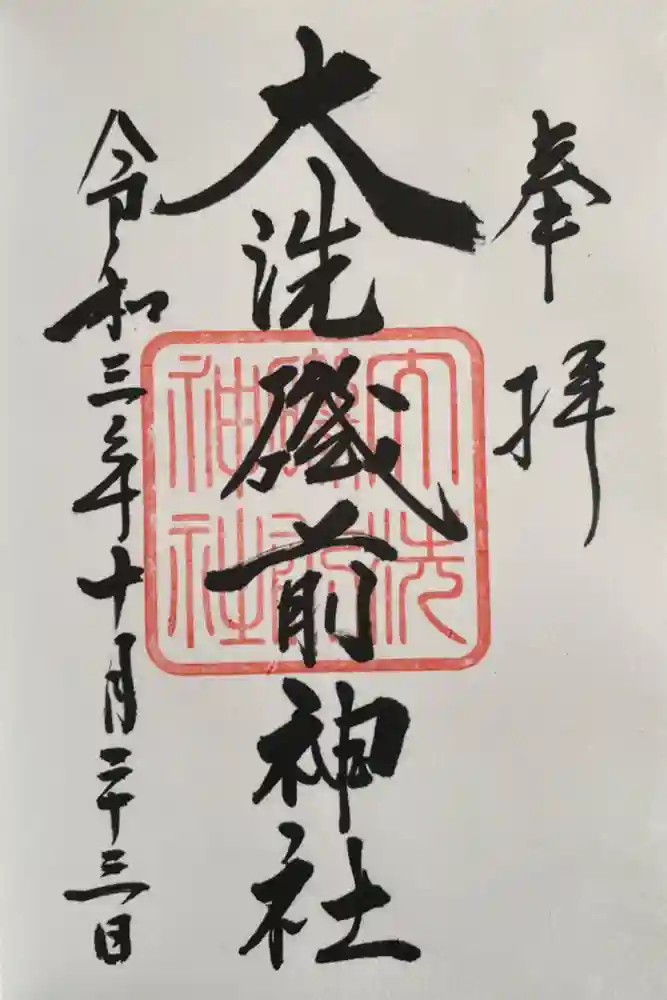 奉拝
大洗磯前神社
令和三年十月二十三日
大洗
磯前
神社